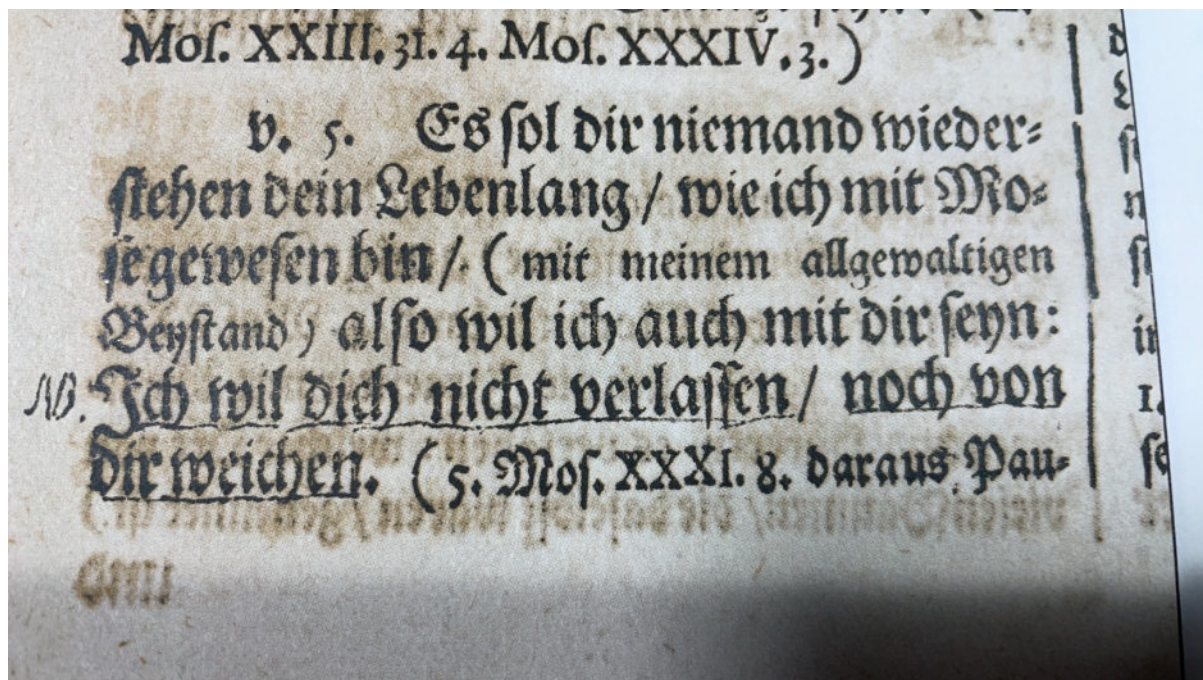 Moſ. XXIII. 31. 4. Moſ. XXXIV. 3. )
v. 5. Es ſol dir niemand wieder⸗
ſtehen dein Lebenlang / wie ich mit Mo⸗
ſe geweſen bin / ( mit meinem allgewaltigen
Beyſtand ) alſo wil ich auch mit dir ſeyn:
NB. Ich wil dich nicht verlaſſen / noch von
dir weichen. ( 5. Moſ. XXXI. 8. daraus Pau⸗